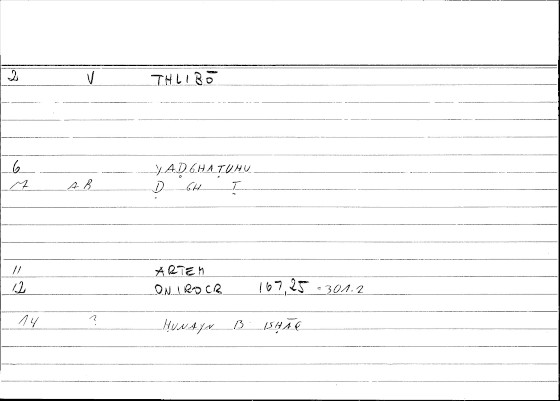 2 V THLIBŌ
6 YAḌGHAṬUHU
7 AR Ḍ GH Ṭ
11 ARTEM
12 ONIROCR 167,25 = 301.2
14 ? ḤUNAYN B ISḤĀQ